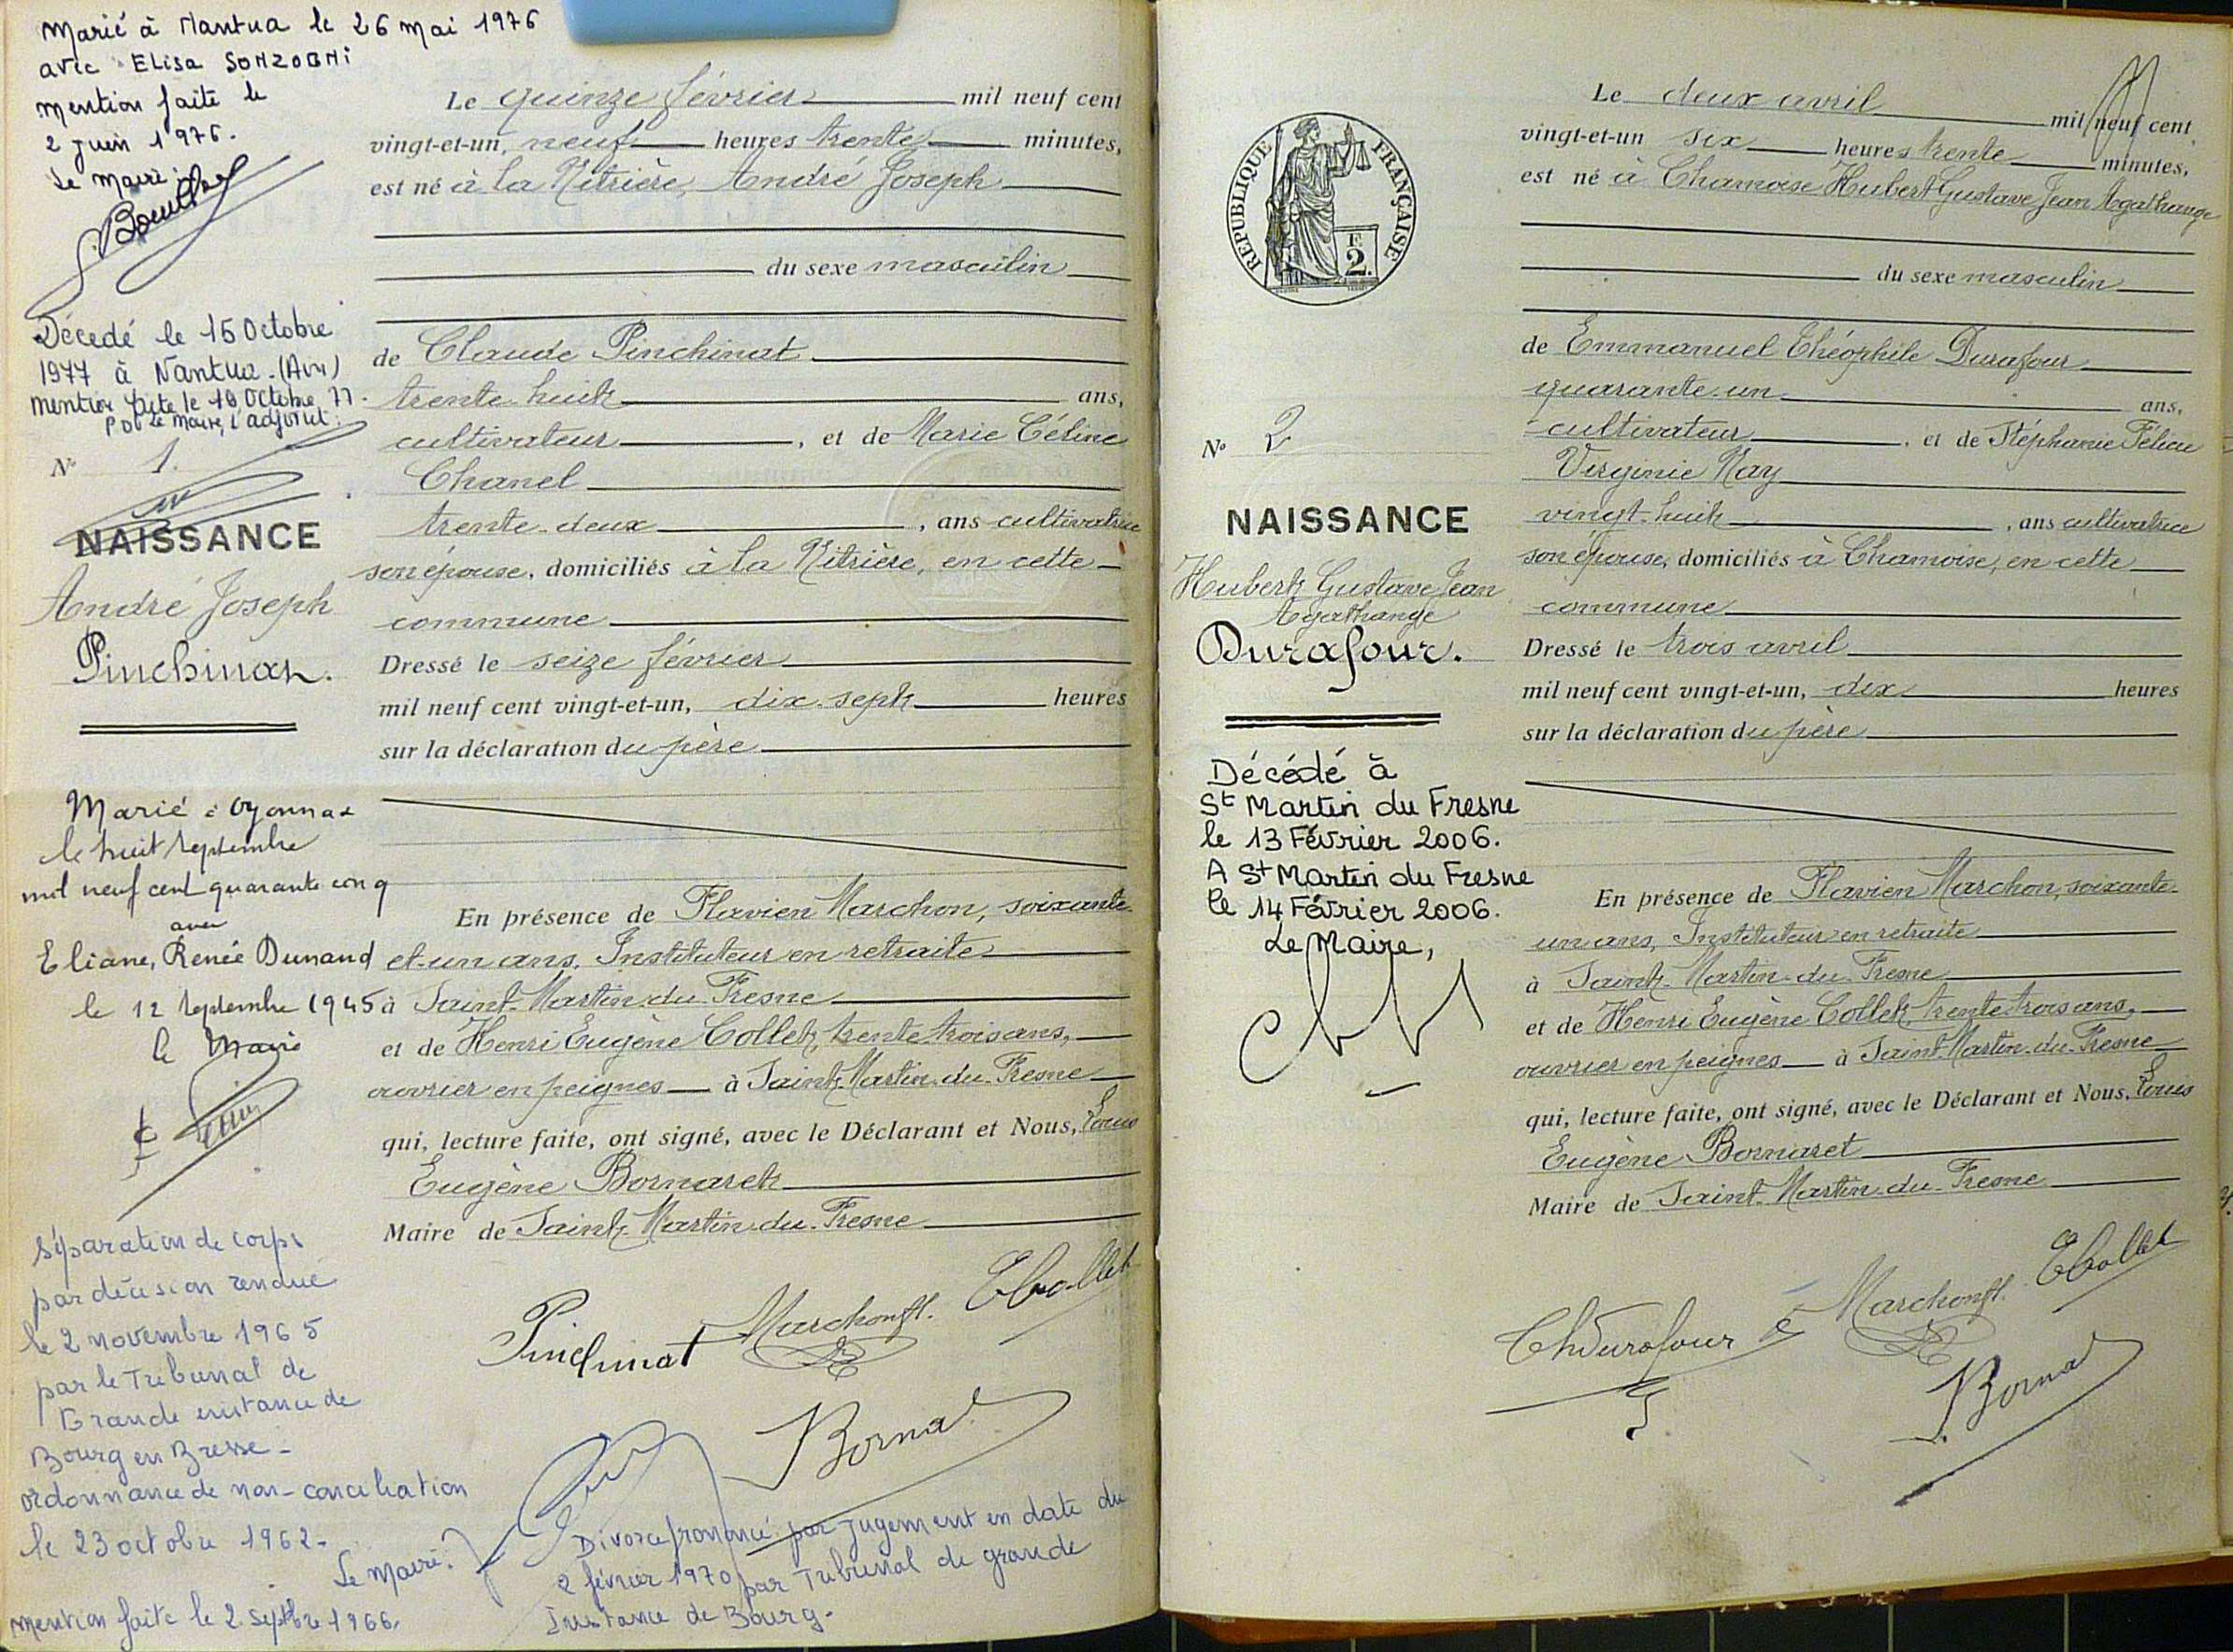 Marié à Nantua le 26 mai 1976
avec Elisa SONZOGNi
mention faite le
2 juin 1976.
Le Maire
Décédé le 15 Octobre
1977 à Nantua. (Ain)
mention faite le 18 Octobre 77.
Pour le Maire, l'adjoint.
N° 1.
NAISSANCE
André Joseph
Pinchinat.
Marié à Oyonnax
le huit septembre
mil neuf cent quarante cinq
avec
Eliane, Renée Dunand
le 12 septembre 1945
le Maire
Séparation de corps
par décision rendue
le 2 novembre 1965
par le Tribunal de
Grande instance de
Bourg en Bresse -
ordonnance de non-conciliation
le 23 octobre 1962.
Le Maire.
mention faite le 2 septbre 1966.
Le quinze février mil neuf cent
vingt-et-un, neuf heures trente minutes,
est né à la Vitrière, André Joseph
du sexe masculin
de Claude Pinchinat
trente-huit ans,
cultivateur, et de Marie Céline
Chanel
trente-deux, ans cultivatrice
son épouse, domiciliés à la Vitrière, en cette
commune
Dressé le seize février
mil neuf cent vingt-et-un, dix-sept heures
sur la déclaration du père
En présence de Flavien Marchon, soixante-
et-un ans, Instituteur en retraite
à Saint-Martin-du-Fresne
et de Henri Eugène Collet, trente-trois ans,
ouvrier en peignes à Saint-Martin-du-Fresne
qui, lecture faite, ont signé, avec le Déclarant et Nous, Louis
Eugène Bornaret
Maire de Saint-Martin-du-Fresne
Pinchinat Marchon fl. E Collet
Bornaret
Divorce prononcé par jugement en date du
2 février 1970 par Tribunal de grande
Instance de Bourg.
REPUBLIQUE FRANÇAISE
F.
2.
N° 2
NAISSANCE
Hubert Gustave Jean
Agathange
Durafour.
Décédé à
St Martin du Fresne
le 13 Février 2006.
A St Martin du Fresne
le 14 Février 2006.
Le Maire,
Le deux avril mil neuf cent
vingt-et-un six heures trente minutes,
est né à Chamoise Hubert Gustave Jean Agathange
du sexe masculin
de Emmanuel Théophile Durafour
quarante-un ans,
cultivateur, et de Stéphanie Félicie
Virginie Nay
vingt-huit, ans cultivatrice
son épouse, domiciliés à Chamoise, en cette
commune
Dressé le trois avril
mil neuf cent vingt-et-un, dix heures
sur la déclaration du père
En présence de Flavien Marchon, soixante-
un ans, Instituteur en retraite
à Saint-Martin-du-Fresne
et de Henri Eugène Collet, trente-trois ans,
ouvrier en peignes à Saint-Martin-du-Fresne
qui, lecture faite, ont signé, avec le Déclarant et Nous, Louis
Eugène Bornaret
Maire de Saint-Martin-du-Fresne
Th Durafour Marchon fl. E Collet
Bornaret